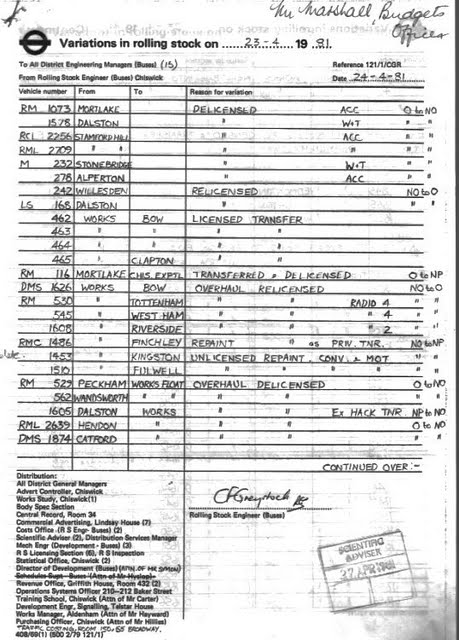 Mr Marshall, Budgets
Officer
Variations in rolling stock on 23-4 19 81.
To All District Engineering Managers (Buses) (15) Reference 121/1/CGR
From Rolling Stock Engineer (Buses) Chiswick Date 24-4-81
Vehicle number From To Reason for variation
RM 1073 MORTLAKE DELICENSED ACC O to NO
1578 DALSTON " W+T " "
RCL 2256 STAMFORD HILL " ACC " "
RML 2709 " " " " " "
M 232 STONEBRIDGE " W+T " "
278 ALPERTON " ACC " "
242 WILLESDEN RELICENSED NO to O
LS 168 DALSTON " " "
462 WORKS BOW LICENSED TRANSFER
463 " " " "
464 " " " "
465 " CLAPTON " "
RM 116 MORTLAKE CHIS. EXPTL TRANSFERRED & DELICENSED O to NP
DMS 1626 WORKS BOW OVERHAUL RELICENSED NO to O
RM 530 " TOTTENHAM " " RADIO 4 " "
545 " WEST HAM " " " 4 " "
1608 " RIVERSIDE " " " 2 " "
RMC 1486 " FINCHLEY REPAINT " as PRIV. TNR. NO to NP
1453 " KINGSTON UNLICENSED REPAINT. CONV. & MOT " "
1510 " FULWELL " " " " " "
RM 529 PECKHAM WORKS FLOAT OVERHAUL DELICENSED O to NO
562 WANDSWORTH " " " " " "
1605 DALSTON WORKS " " Ex HACK TNR. NP to NO
RML 2639 HENDON " " " O to NO
DMS 1874 CATFORD " " " " "
CONTINUED OVER :-
Distribution:
All District General Managers
Advert Controller, Chiswick
Works Study, Chiswick(1)
Body Spec Section
Central Record, Room 34
Commercial Advertising, Lindsay House (7)
Costs Office (R S Engr- Buses) (2)
Scientific Adviser (2), Distribution Services Manager
Mech Engr (Development - Buses) (3)
R S Licensing Section (6), R S Inspection
Statistical Office, Chiswick (2)
Director of Development (Buses) (ATTN. OF MR SIMON)
Schedules Supt - Buses (Attn of Mr Hyslop)
Revenue Office, Griffith House, Room 432 (2)
Operations Systems Officer 210-212 Baker Street
Training School, Chiswick (Attn of Mr Carter)
Development Engr, Signalling, Telstar House
Works Manager, Aldenham (Attn of Mr Hayward)
Purchasing Officer, Chiswick (Attn of Mr Hillies)
TRAFFIC COSTING, ROOM 55 BROADWAY.
408/69(1) (500 2/79 121/1)
Rolling Stock Engineer (Buses)
SCIENTIFIC
ADVISER
27 APR 1981